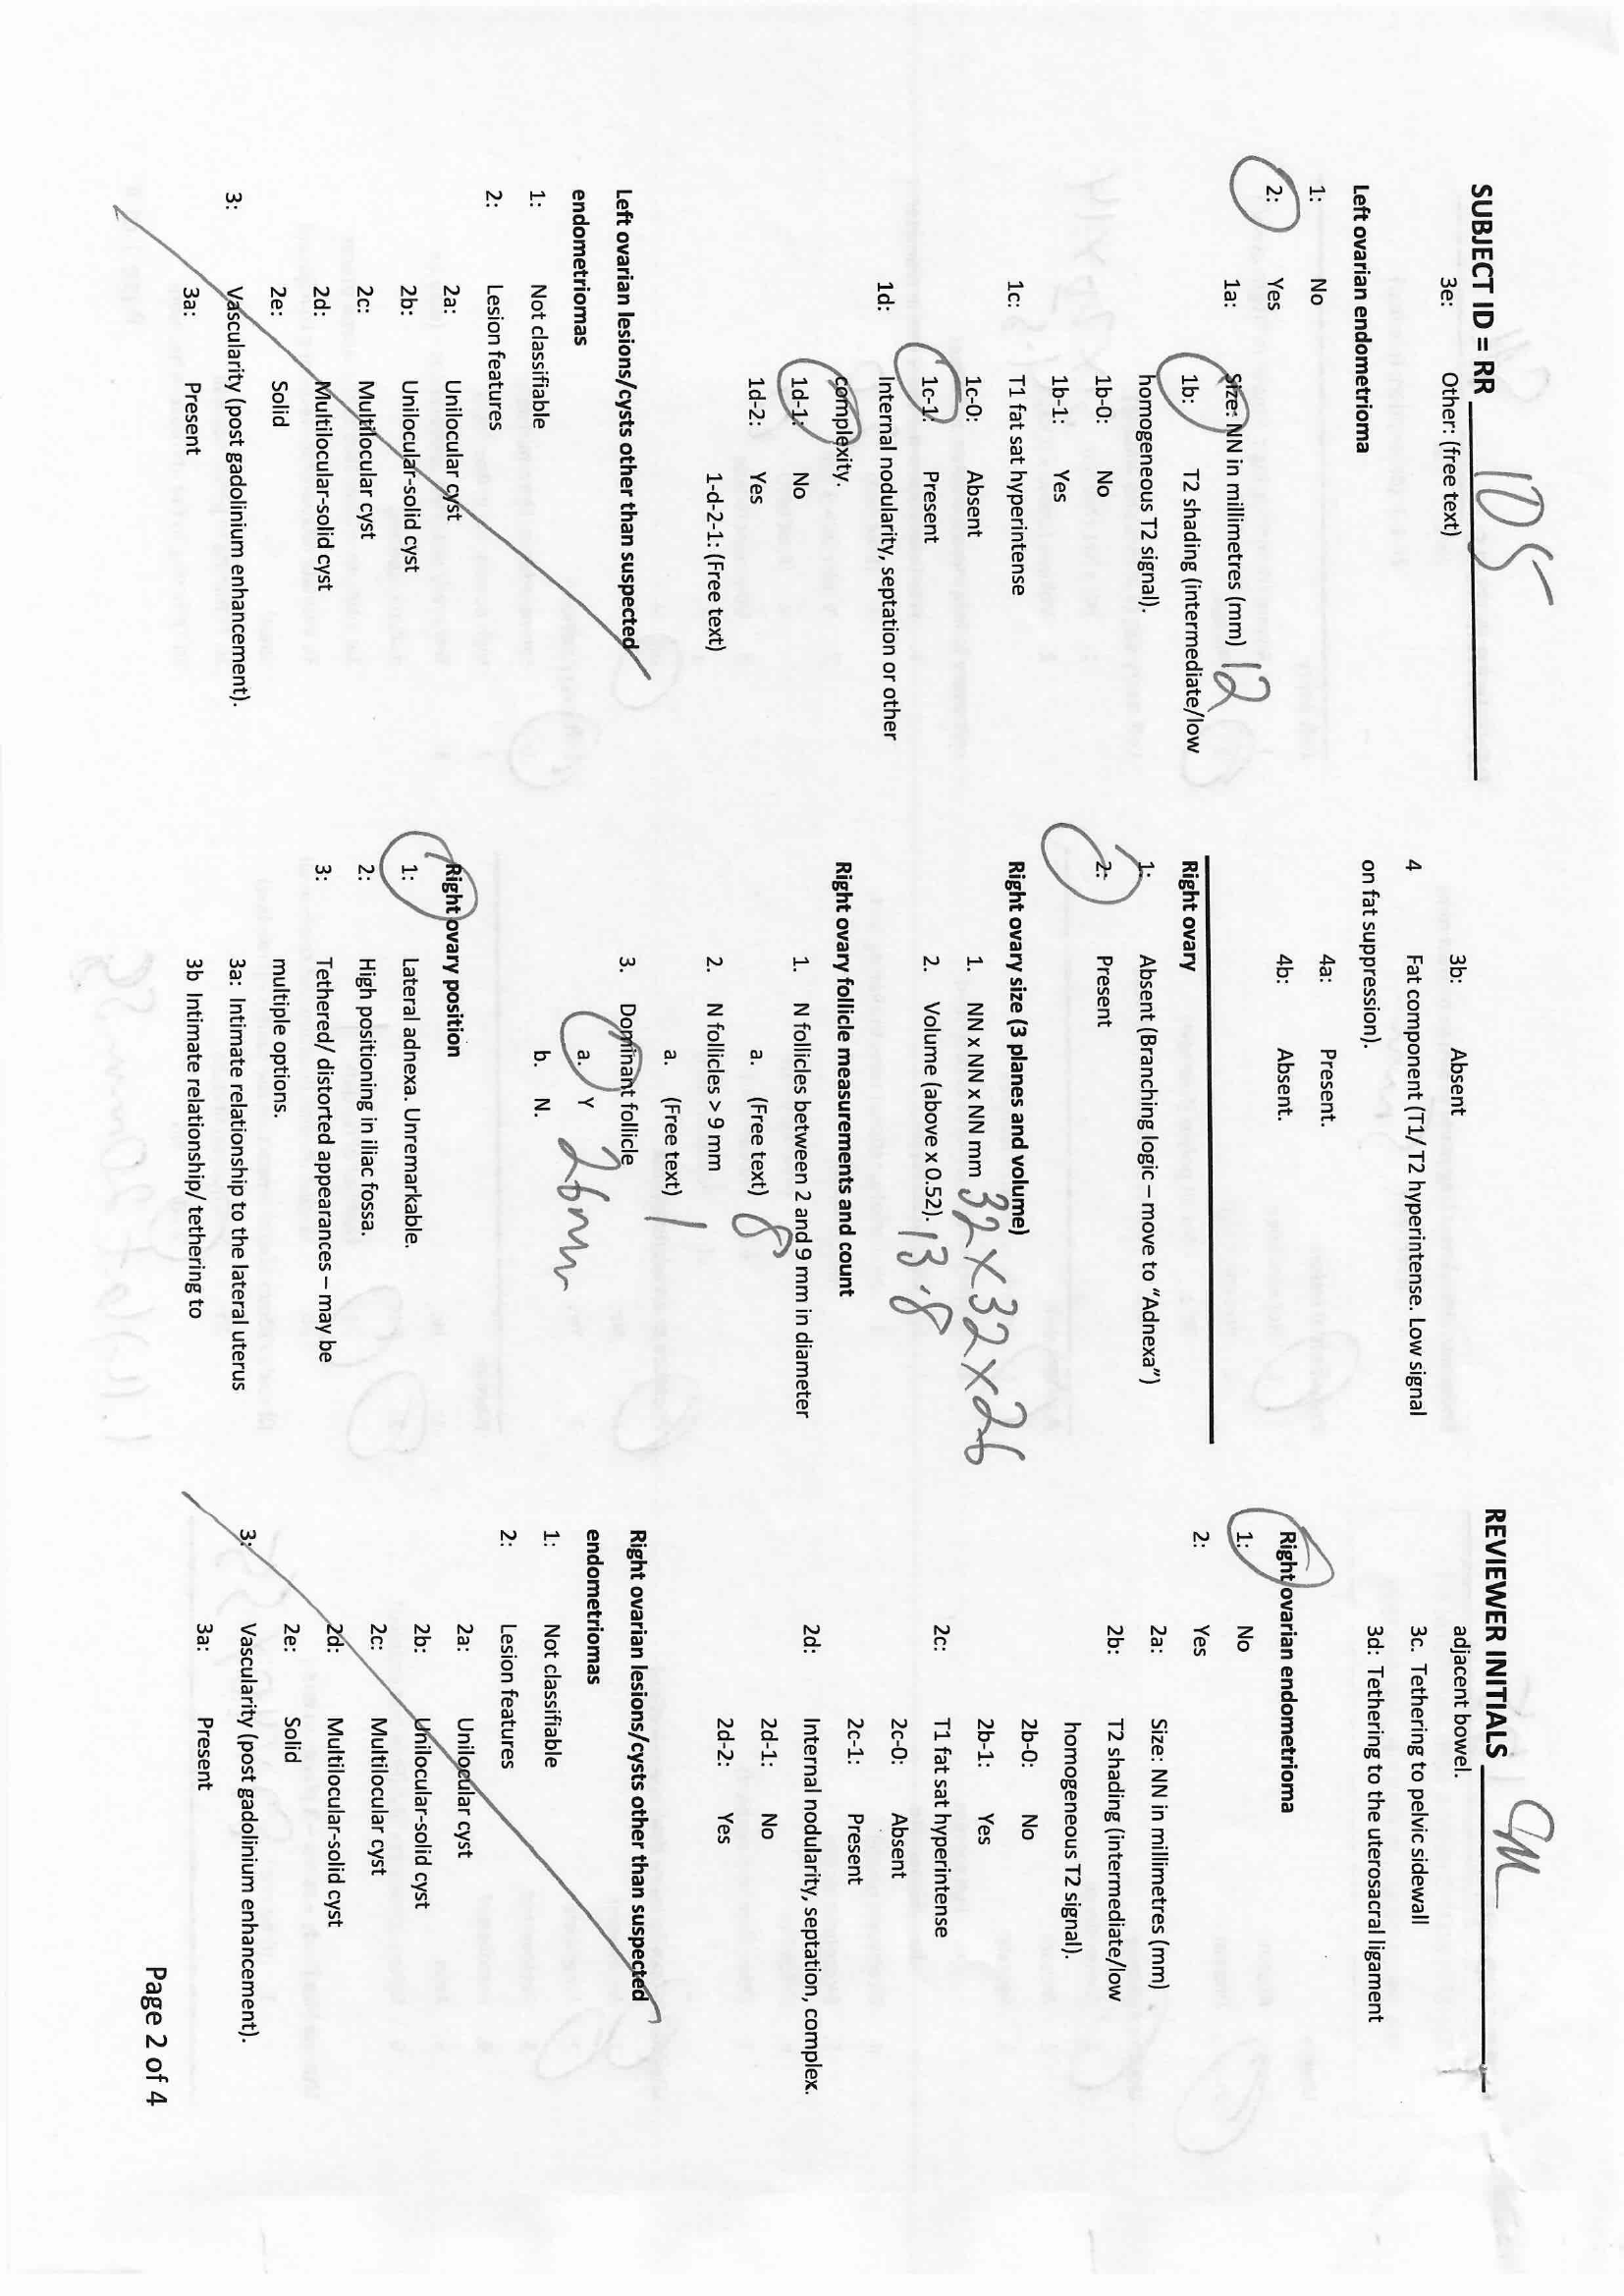 SUBJECT ID = RR 105
3e: Other: (free text)
Left ovarian endometrioma
1: No
2: Yes
1a: Size: NN in millimetres (mm) 12
1b: T2 shading (intermediate/low
homogeneous T2 signal).
1b-0: No
1b-1: Yes
1c: T1 fat sat hyperintense
1c-0: Absent
1c-1: Present
1d: Internal nodularity, septation or other
complexity.
1d-1: No
1d-2: Yes
1-d-2-1: (Free text)
Left ovarian lesions/cysts other than suspected
endometriomas
1: Not classifiable
2: Lesion features
2a: Unilocular cyst
2b: Unilocular-solid cyst
2c: Multilocular cyst
2d: Multilocular-solid cyst
2e: Solid
3: Vascularity (post gadolinium enhancement).
3a: Present
3b: Absent
4 Fat component (T1/ T2 hyperintense. Low signal
on fat suppression).
4a: Present.
4b: Absent.
Right ovary
1: Absent (Branching logic – move to “Adnexa”)
2: Present
Right ovary size (3 planes and volume)
1. NN x NN x NN mm 32 x 32 x 26
2. Volume (above x 0.52). 13.8
Right ovary follicle measurements and count
1. N follicles between 2 and 9 mm in diameter
a. (Free text) 8
2. N follicles > 9 mm
a. (Free text) 1
3. Dominant follicle
a. Y 26mm
b. N.
Right ovary position
1: Lateral adnexa. Unremarkable.
2: High positioning in iliac fossa.
3: Tethered/ distorted appearances – may be
multiple options.
3a: Intimate relationship to the lateral uterus
3b Intimate relationship/ tethering to
REVIEWER INITIALS
adjacent bowel.
3c. Tethering to pelvic sidewall
3d: Tethering to the uterosacral ligament
Right ovarian endometrioma
1: No
2: Yes
2a: Size: NN in millimetres (mm)
2b: T2 shading (intermediate/low
homogeneous T2 signal).
2b-0: No
2b-1: Yes
2c: T1 fat sat hyperintense
2c-0: Absent
2c-1: Present
2d: Internal nodularity, septation, complex.
2d-1: No
2d-2: Yes
Right ovarian lesions/cysts other than suspected
endometriomas
1: Not classifiable
2: Lesion features
2a: Unilocular cyst
2b: Unilocular-solid cyst
2c: Multilocular cyst
2d: Multilocular-solid cyst
2e: Solid
3: Vascularity (post gadolinium enhancement).
3a: Present
Page 2 of 4